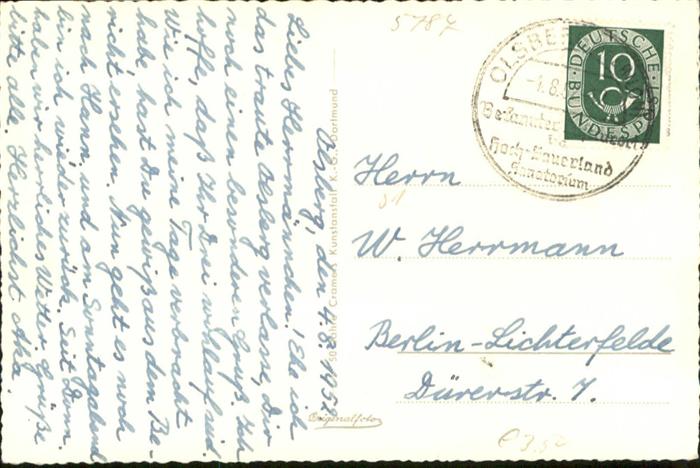 5787
Olsberg, den 4.8.1952
Liebes Herrmännchen! Ehe ich
das traute Olsberg verlasse, Dir
noch einen besonderen Gruß. Ich
hoffe, daß Ihr Drei wohlauf seid.
Wie ich meine Tage verbracht
habe, hast Du gewiß aus dem Be-
richt ersehen. Nun geht es noch
nach Hann. und am Sonntagabend
bin ich wieder zurück. Seit Donn.
haben wir herrliches Wetter. Grüße
bitte alle. Herzlichst
50 Jahre Cramers Kunstanstalt K.-G., Dortmund
Originalfoto
OLSBERG
Bekannter
Hoch-Sauerland
Sanatorium
DEUTSCHE
10
BUNDESPOST
Herrn
W. Herrmann
Berlin-Lichterfelde
Dürerstr. 7.